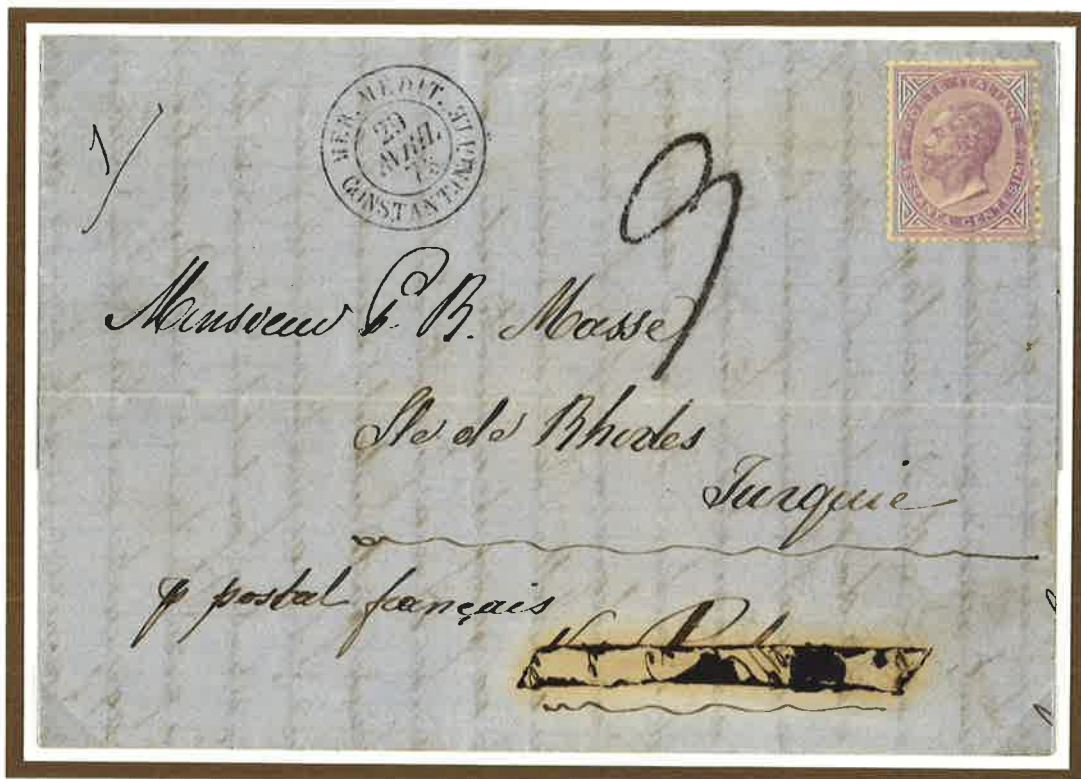 1
MER. MEDIT.
29
AVRIL
CONSTANTINE
POSTE ITALIANE
SESSANTA CENTESIMI
9
Monsieur P. B. Masse
Ile de Rhodes
Turquie
p postal français